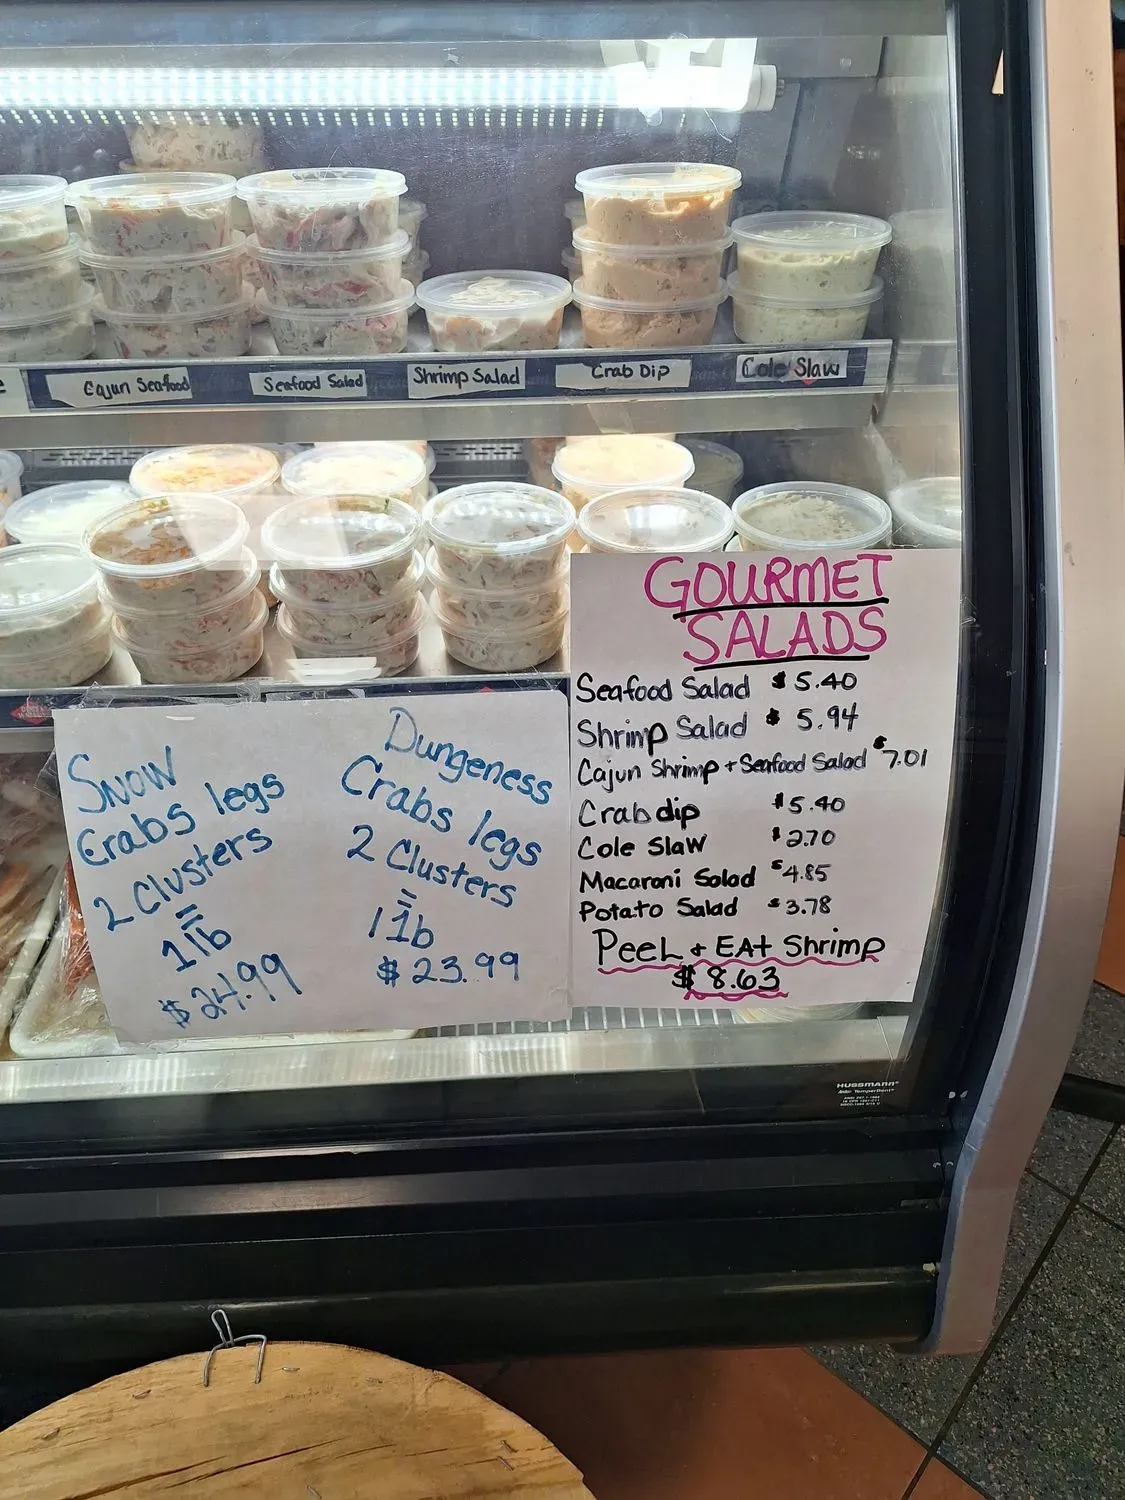 Cajun Seafood
Seafood Salad
Shrimp Salad
Crab Dip
Cole Slaw
GOURMET
SALADS
Seafood Salad $ 5.40
Shrimp Salad $ 5.94
Cajun Shrimp + Seafood Salad $7.01
Crab dip $5.40
Cole Slaw $2.70
Macaroni Salad $4.85
Potato Salad $3.78
PeeL + EAt Shrimp
$ 8.63
Snow
Crabs legs
2 Clusters
=
1 lb
$24.99
Dungeness
Crabs legs
2 Clusters
=
1 lb
$ 23.99
HUSSMANN